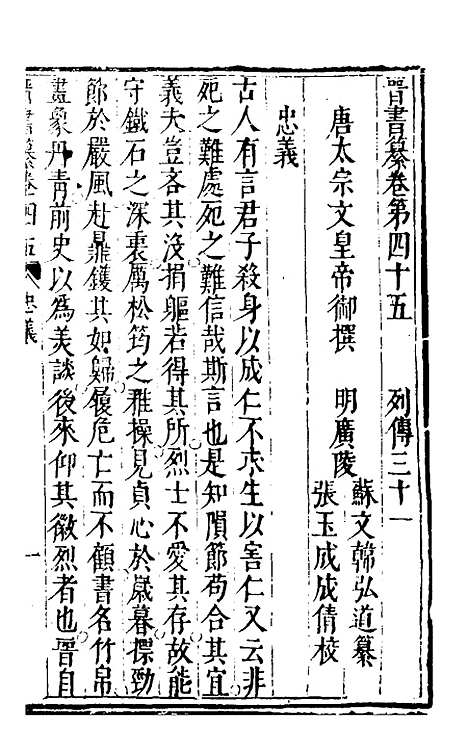 晉書纂卷第四十五　列傳三十一
唐太宗文皇帝御撰　明廣陵
蘇文韓弘道纂
張玉成成倩校
忠義
古人有言君子殺身以成仁不求生以害仁又云非
死之難處死之難信哉斯言也是知隕節苟合其宜
義夫豈吝其沒捐軀若得其所烈士不愛其存故能
守鐵石之深衷厲松筠之雅操見貞心於歲暮摽勁
節於嚴風赴鼎鑊其如歸履危亡而不顧書名竹帛
畫象丹青前史以為美談後來仰其徽烈者也晉自
晉書纂卷四五　忠義　一